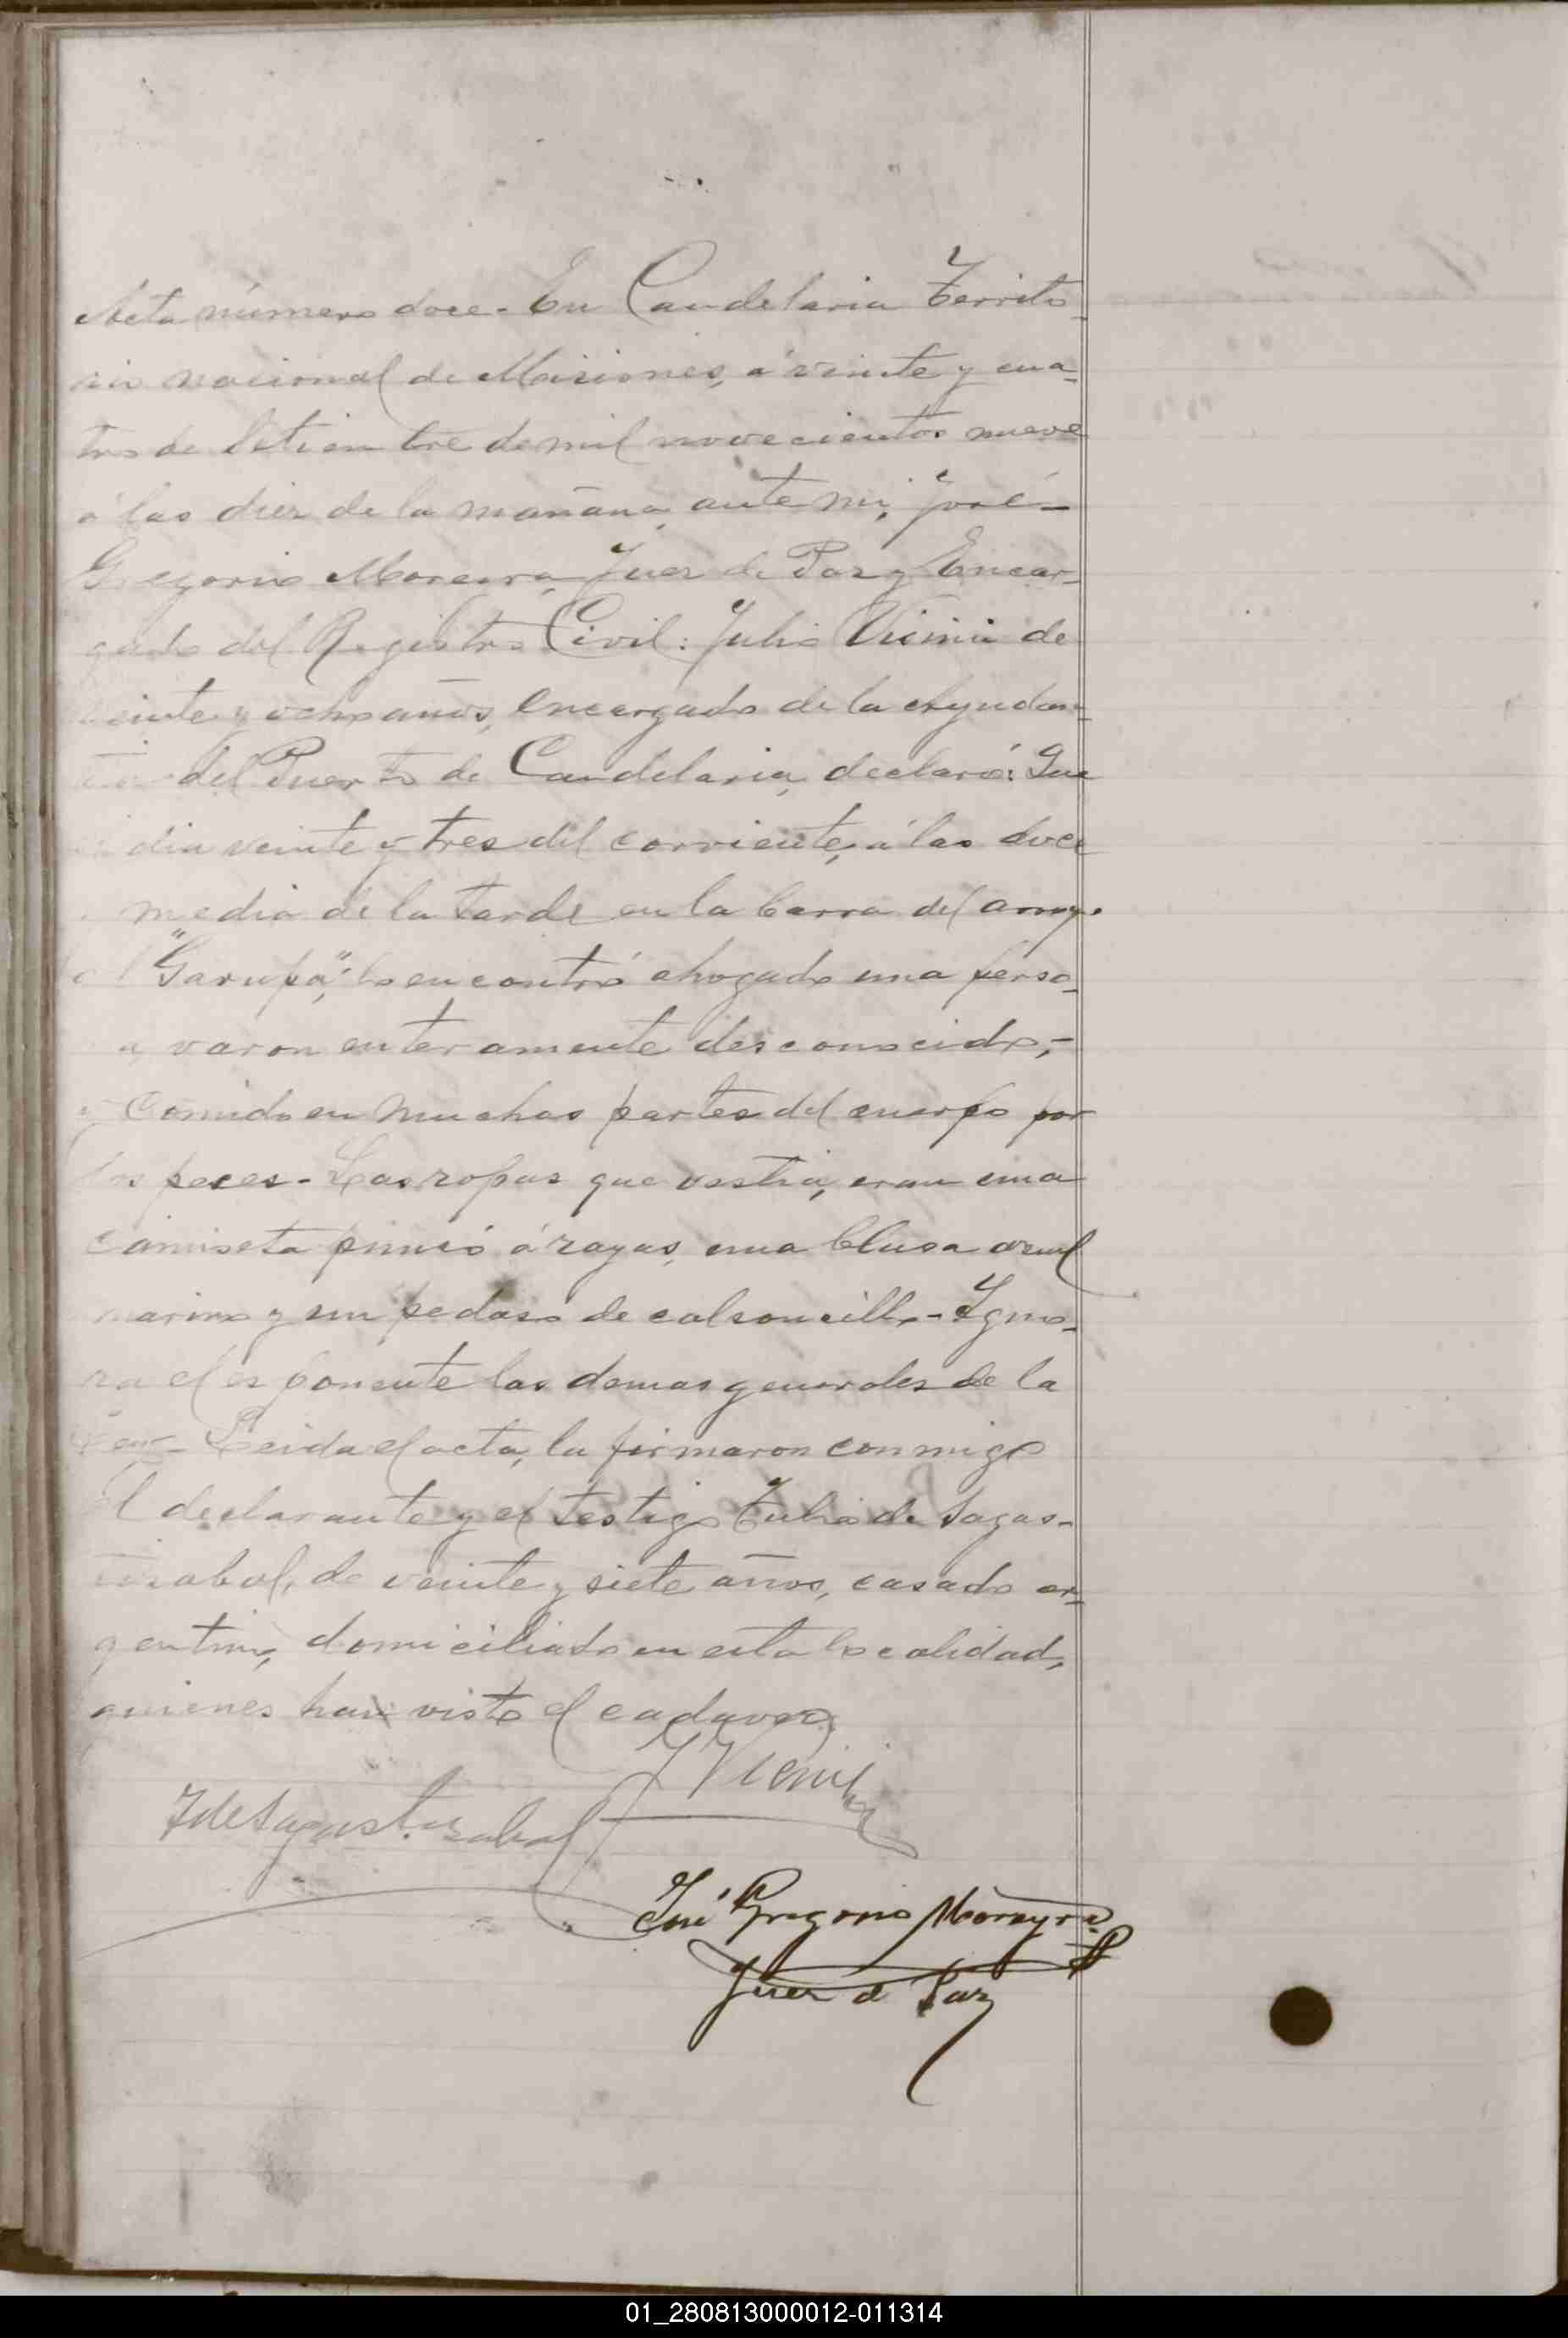 Acta número doce. En Candelaria Territo-
rio nacional de Misiones, á veinte y cua-
tro de Setiembre de mil novecientos nueve
á las diez de la mañana, ante mi, José
Gregorio Moreira, Juez de Paz y Encar-
gado del Registro Civil: Julio de
veinte y ocho años, encargado de la Ayudan-
tia del Puerto de Candelaria, declaró: Que
el dia veinte y tres del corriente, á las doce
y media de la tarde en la barra del arroyo
del "Garupá", lo encontró ahogado una perso-
na varon enteramente desconocido,-
y comido en muchas partes del cuerpo por
los peces - Las ropas que vestia, eran una
camiseta punzó á rayas, una blusa azul
marino y un pedaso de calsoncillo - Igno-
ra el esponente las demas generales de la
Ley - Leida el acta, la firmaron conmigo
el declarante y el testigo Julio de Sagas-
tizabal, de veinte y siete años, casado ar-
gentino, domiciliado en esta localidad,
quienes han visto el cadaver,
J de Sagastizabal
José Gregorio Moreyra
Juez d Paz
01_280813000012-011314